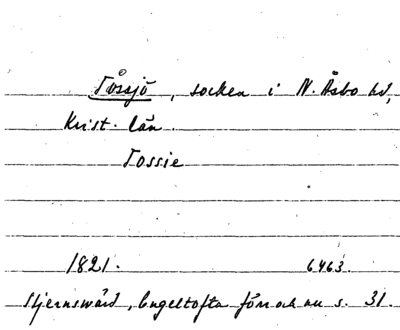 Tåssjö, socken i N. Åsbo hd,
Krist. län.
Tossie
1821. 6463.
Stjernswärd, Engeltofta förr och nu s. 31.